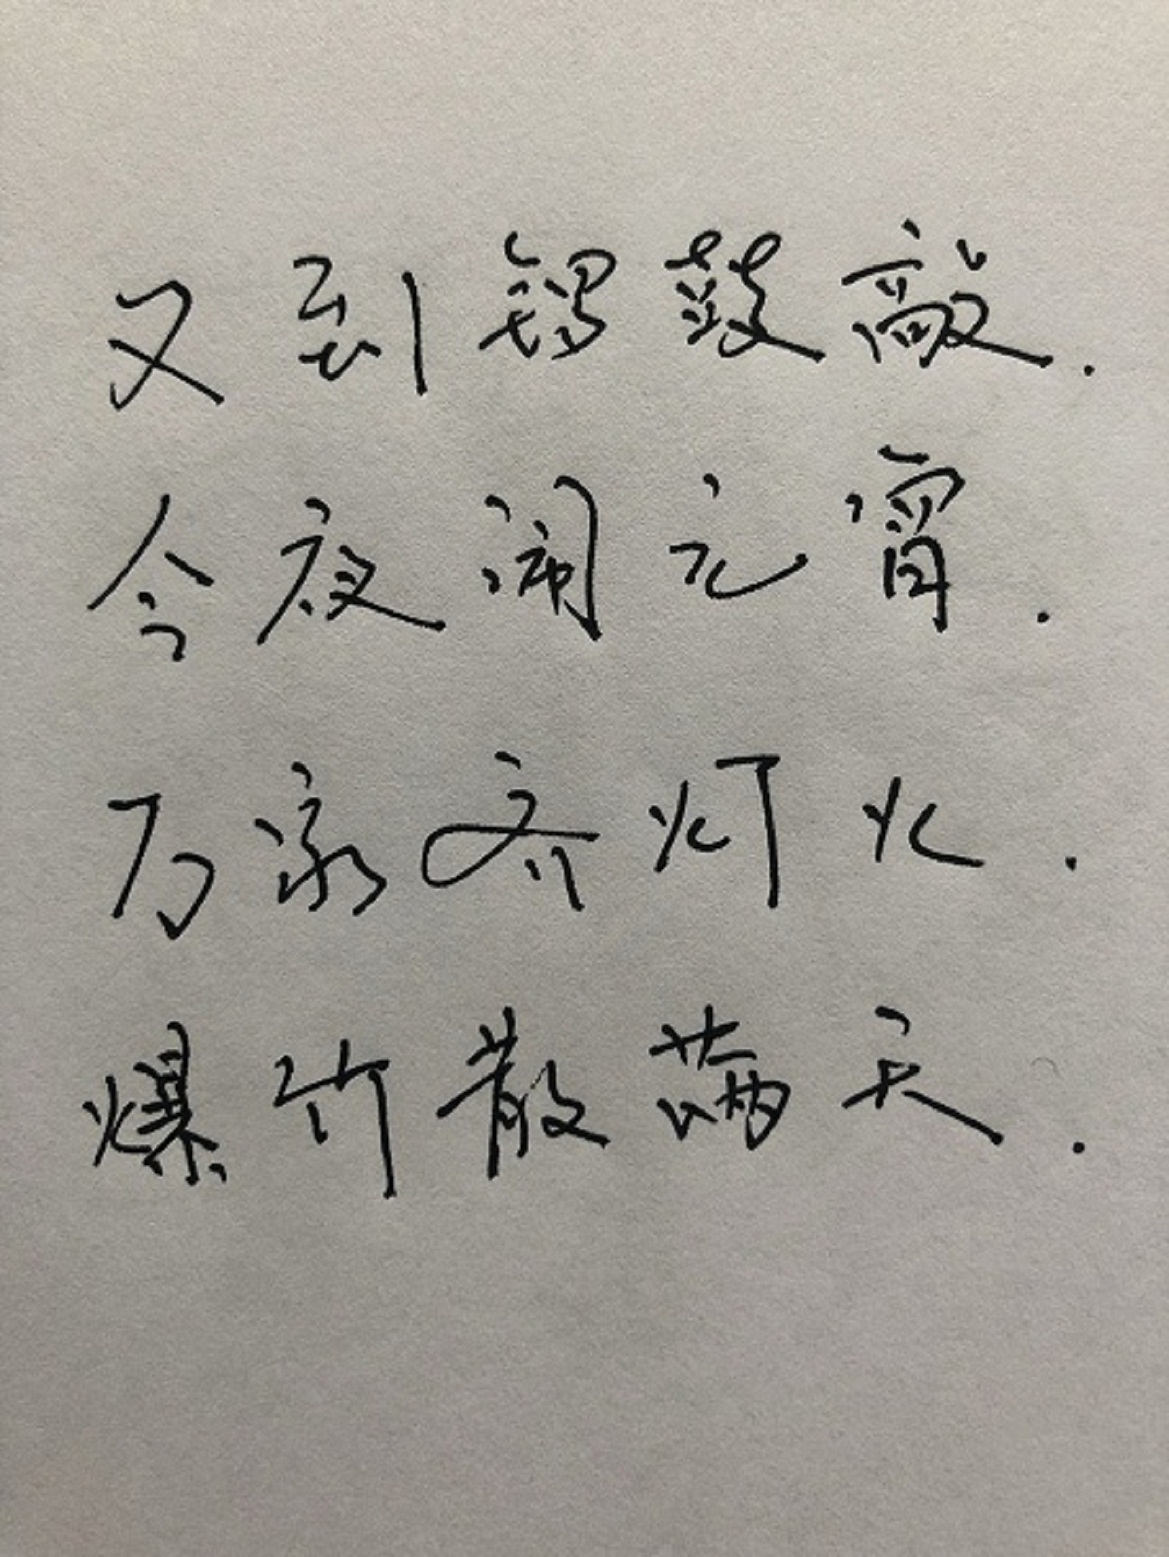 又到锣鼓敲.
今夜闹元宵.
万家齐灯火.
爆竹散满天.